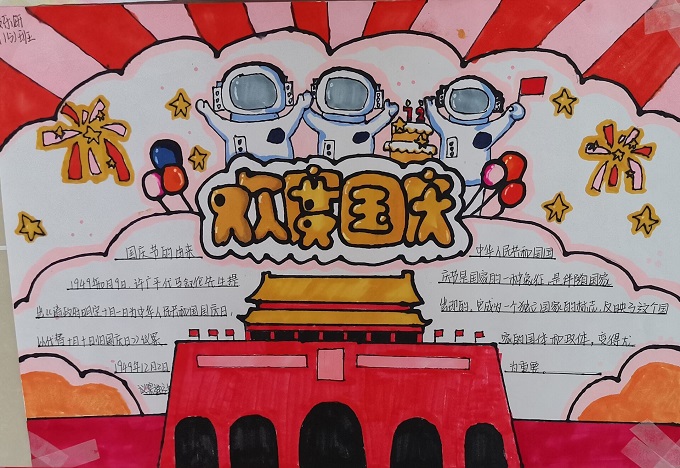 (15)班
12
欢度国庆
国庆节的由来
1949年10月9日,许广平代马叙伦先生提
出以请政府明定十月一日为中华人民共和国国庆日,
以代替十月十日旧国庆日的议案
1949年12月2日
中华人民共和国国
庆节是国家的一种象征,是伴随国家
出现的,它成为一个独立国家的标志,反映了这个国
家的国体和政体,变得尤
为重要